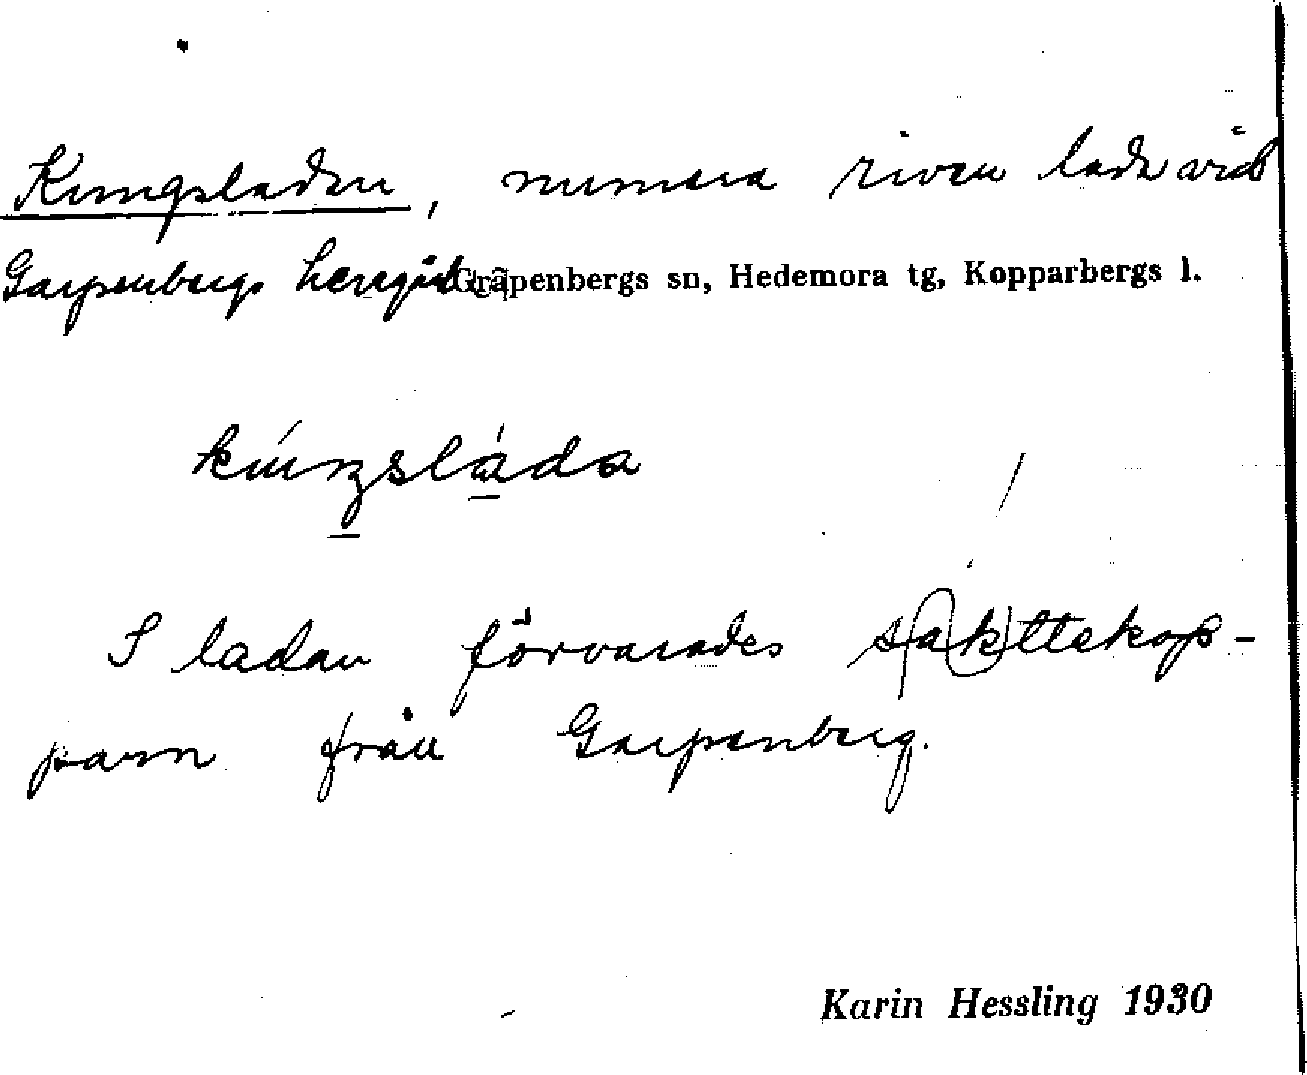 Kungsladan, numera riven lada vid
Garpenbergs herrgård Grapenbergs sn, Hedemora tg, Kopparbergs l.
I ladan förvarades skattekop-
parn från Garpenberg.
Karin Hessling 1930